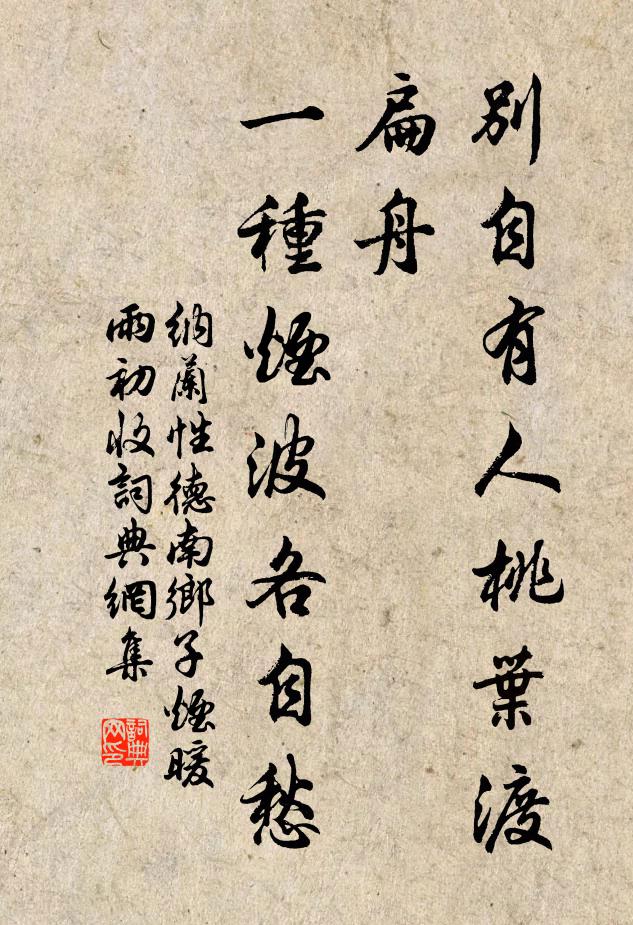 別自有人桃葉渡
扁舟
一種煙波各自愁
納蘭性德南鄉子煙暖
雨初收詞典網集
詞典
网印